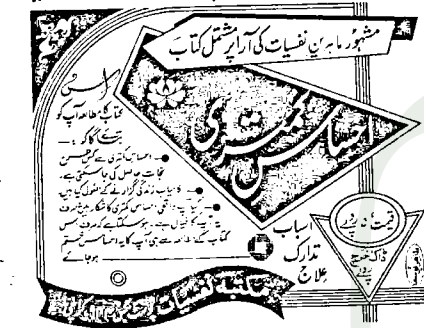 مشہور ماہرین نفسیات کی آرا پر مشتمل کتاب
احساس کمتری
اس
کتاب کا مطالعہ آپ کو
بتائے گا کہ :-
احساس کمتری سے کس طرح
نجات حاصل کی جاسکتی ہے۔
کامیاب زندگی گزارنے کے اصول کیا ہیں
کیا آپ واقعی احساس کمتری کا شکار ہیں
ہوسکتا ہے کہ صرف اس
کتاب کے مطالعہ سے ہی آپ کا یہ احساس ختم
ہوجائے
اسباب
تدارک
علاج
قیمت
روپے
ڈاک خرچ
روپے
مکتبہ نفسیات
کراچی